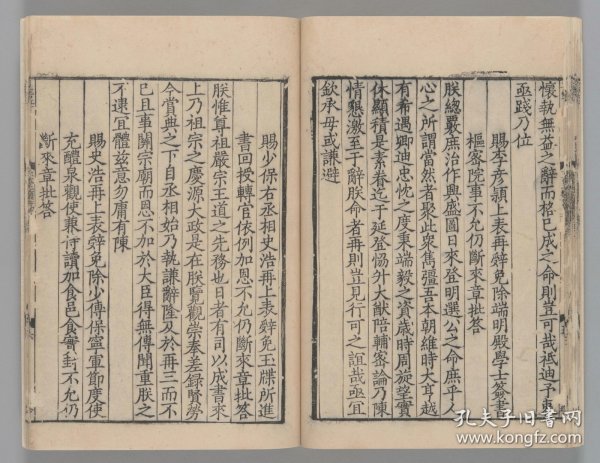 懷執無益之辭而格已成之命則豈可哉祗迪予衷
亟踐乃位
賜李彥穎上表再辭免除端明殿學士簽書
樞密院事不允仍斷來章批答
朕總覈庶治作興盛圖日來登明選公之命庶乎人
心之所謂當然者聚此衆雋彊吾本朝維時大耳越
有希遇卿迪忠忱之度秉端毅之資歲時周旋望實
休顯積是素眷迄于延登惕外大猷陪輔客論乃陳
情懇激至于辭朕命者再則豈見行可之誼哉亟宜
欽承毋或謙避
賜少保右丞相史浩再上表辭免玉牒所進
書回授轉官依例加恩不允仍斷來章批答
朕惟尊祖嚴宗王道之先務也日者有司以成書來
上乃祖宗之慶源大政是在朕覽觀崇奉差錄賢勞
今賞典之下自丞相始乃執謙辭隆及於再三而不
已且事關宗廟而恩不加於大臣得無傳聞重朕之
不逮宜體茲意勿庸有陳
賜史浩再上表辭免除少傅保寧軍節度使
充醴泉觀使兼侍讀加食邑食實封不允仍
斷來章批答
孔夫子旧书网
www.kongfz.com